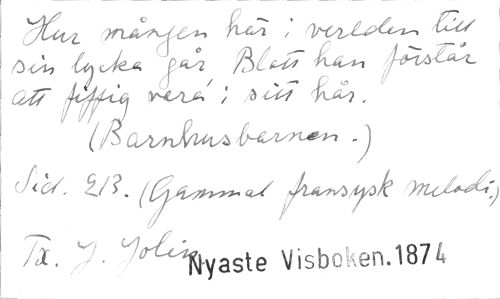 Hur mången här i verlden till
sin lycka går, Blott han förstår
att fiffig vara, i sitt hår.
(Barnhusbarnen.)
Sid. 213. (Gammal fransysk melodi.)
Tx. J. Jolin,
Nyaste Visboken.1874